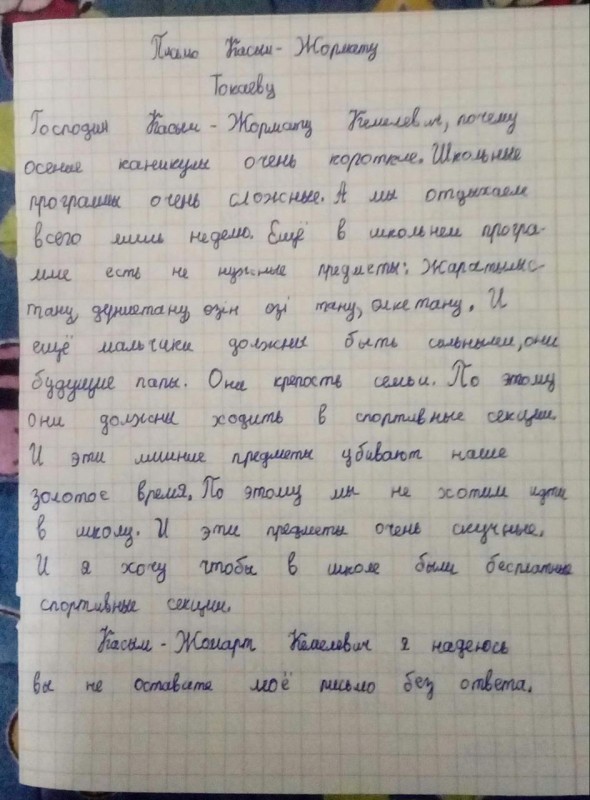 Письмо Касым-Жормату
Токаеву
Господин Касым-Жормату Кемелевич, почему
осение каникулы очень короткие. Школьные
программы очень сложные. А мы отдыхаем
всего лишь неделю. Ещё в школьнем програ-
мме есть не нужные предметы: Жаратылыс-
тану, дүниетану, өзін өзі тану, өлке тану. И
ещё мальчики должны быть сильными, они
будущие папы. Они крепость семьи. По этому
они должны ходить в спортивные секции.
И эти лишние предметы убивают наше
золотое время. По этому мы не хотим идти
в школу. И эти предметы очень скучные.
И я хочу чтобы в школе были бесплатные
спортивные секции.
Касым-Жомарт Кемелевич я надеюсь
вы не оставите моё письмо без ответа.